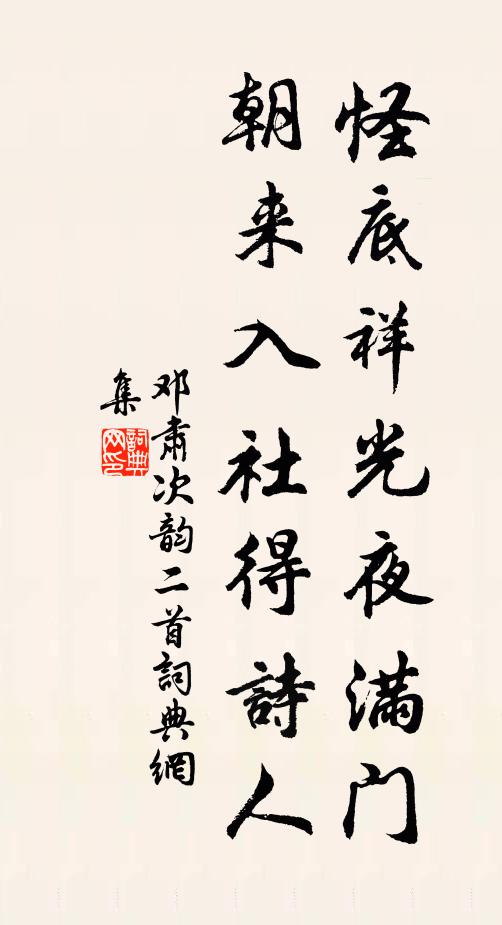 怪底祥光夜满门
朝来入社得詩人
邓肃次韵二首詞典網
集
詞典网印